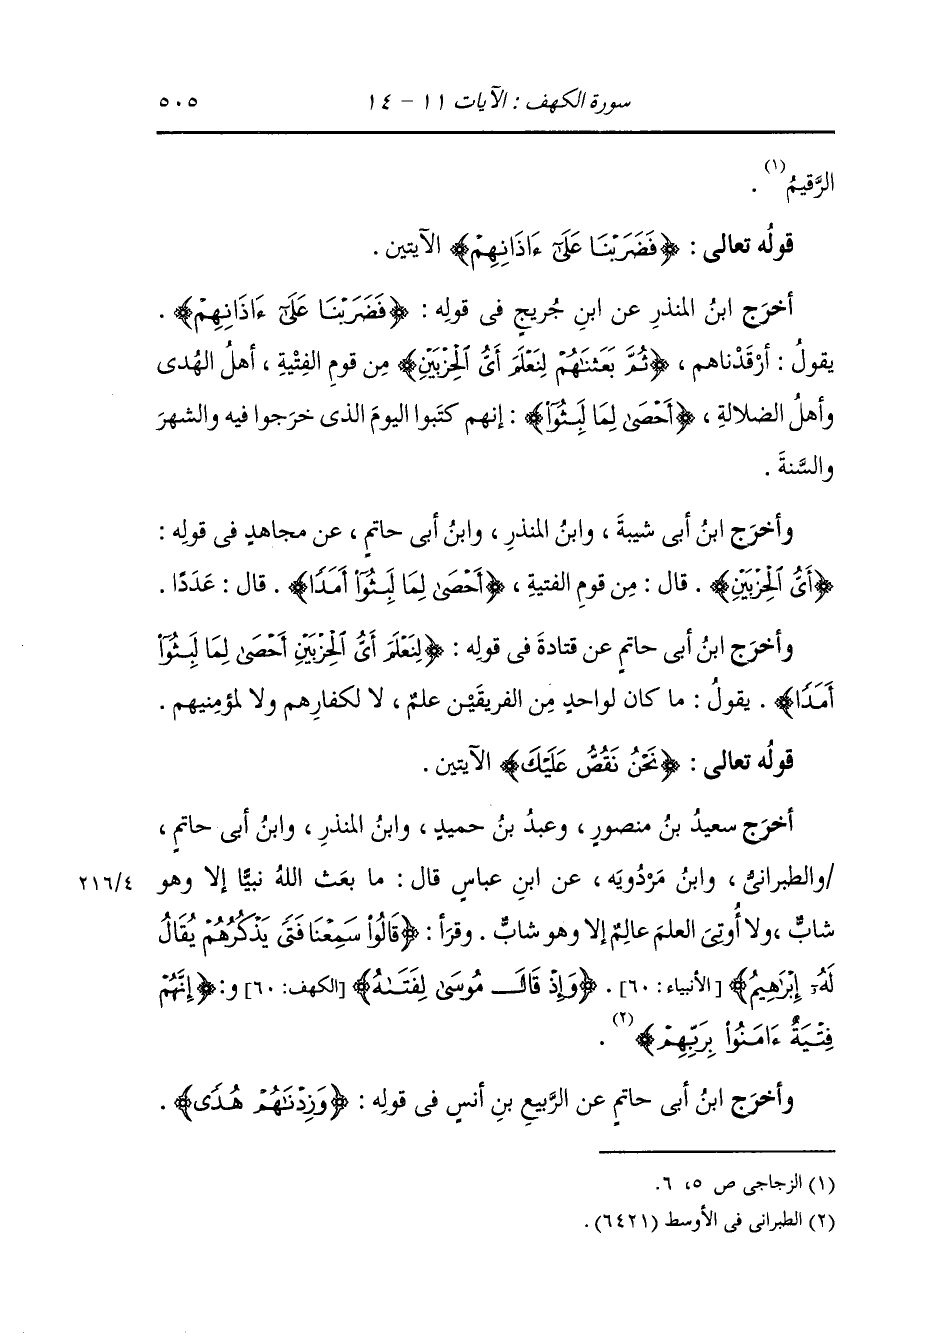 سورة الكهف : الآيات ١١ - ١٤ ٥٠٥
الرَّقيمُ(١) .
قولُه تعالى : ﴿فَضَرَبْنَا عَلَىٰٓ ءَاذَانِهِمْ﴾ الآيتين .
أخرَج ابنُ المنذرِ عن ابنِ جُريجٍ فى قولِه : ﴿فَضَرَبْنَا عَلَىٰٓ ءَاذَانِهِمْ﴾ .
يقولُ : أرْقَدْناهم ، ﴿ثُمَّ بَعَثْنَٰهُمْ لِنَعْلَمَ أَىُّ ٱلْحِزْبَيْنِ﴾ مِن قومِ الفِتْيةِ ، أهلُ الهُدى
وأهلُ الضلالةِ ، ﴿أَحْصَىٰ لِمَا لَبِثُوٓا۟﴾ : إنهم كتَبوا اليومَ الذى خرَجوا فيه والشهرَ
والسَّنةَ .
وأخرَج ابنُ أبى شيبةَ ، وابنُ المنذرِ ، وابنُ أبى حاتمٍ ، عن مجاهدٍ فى قولِه :
﴿أَىُّ ٱلْحِزْبَيْنِ﴾ . قال : مِن قومِ الفتيةِ ، ﴿أَحْصَىٰ لِمَا لَبِثُوٓا۟ أَمَدًا﴾ . قال : عَدَدًا .
وأخرَج ابنُ أبى حاتمٍ عن قتادةَ فى قولِه : ﴿لِنَعْلَمَ أَىُّ ٱلْحِزْبَيْنِ أَحْصَىٰ لِمَا لَبِثُوٓا۟
أَمَدًا﴾ . يقولُ : ما كان لواحدٍ مِن الفريقَيْن علمٌ ، لا لكفارِهم ولا لمؤمِنيهم .
قولُه تعالى : ﴿نَحْنُ نَقُصُّ عَلَيْكَ﴾ الآيتين .
أخرَج سعيدُ بنُ منصورٍ ، وعبدُ بنُ حميدٍ ، وابنُ المنذرِ ، وابنُ أبى حاتمٍ ،
/والطبرانىُّ ، وابنُ مَرْدُويَه ، عن ابنِ عباسٍ قال : ما بعَث اللهُ نبيًّا إلا وهو ٢١٦/٤
شابٌّ ،ولا أُوتِىَ العلمَ عالِمٌ إلا وهو شابٌّ . وقرأ : ﴿قَالُوا۟ سَمِعْنَا فَتًى يَذْكُرُهُمْ يُقَالُ
لَهُۥٓ إِبْرَٰهِيمُ﴾ [الأنبياء: ٦٠] . ﴿وَإِذْ قَالَ مُوسَىٰ لِفَتَىٰهُ﴾ [الكهف: ٦٠] و: ﴿إِنَّهُمْ
فِتْيَةٌ ءَامَنُوا۟ بِرَبِّهِمْ﴾(٢) .
وأخرَج ابنُ أبى حاتمٍ عن الرَّبيعِ بنِ أنسٍ فى قولِه : ﴿وَزِدْنَٰهُمْ هُدًى﴾ .
(١) الزجاجى ص ٥، ٦.
(٢) الطبرانى فى الأوسط (٦٤٢١) .